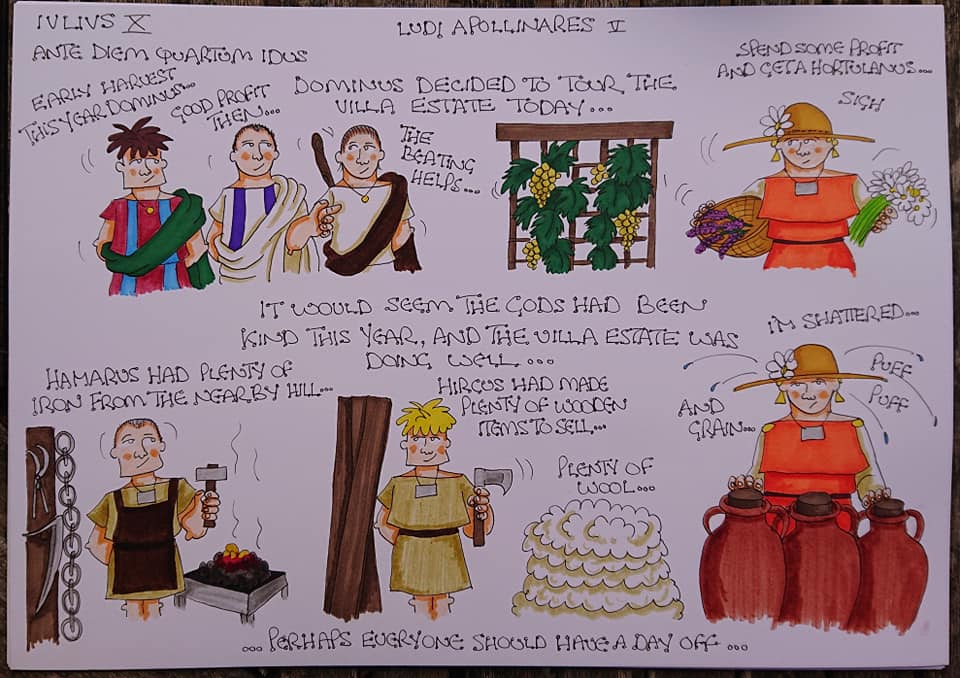 IVLIVS X
LUDI APOLLINARES V
ANTE DIEM QUARTUM IDUS
EARLY HARVEST
THIS YEAR DOMINUS...
GOOD PROFIT
THEN...
DOMINUS DECIDED TO TOUR THE
VILLA ESTATE TODAY...
THE
BEATING
HELPS...
SPEND SOME PROFIT
AND GET A HORTULANUS...
SIGH
IT WOULD SEEM THE GODS HAD BEEN
KIND THIS YEAR, AND THE VILLA ESTATE WAS
DOING WELL...
HAMARUS HAD PLENTY OF
IRON FROM THE NEARBY HILL...
HIRCUS HAD MADE
PLENTY OF WOODEN
ITEMS TO SELL...
PLENTY OF
WOOL...
AND
GRAIN...
I'M SHATTERED...
PUFF
PUFF
...PERHAPS EVERYONE SHOULD HAVE A DAY OFF...